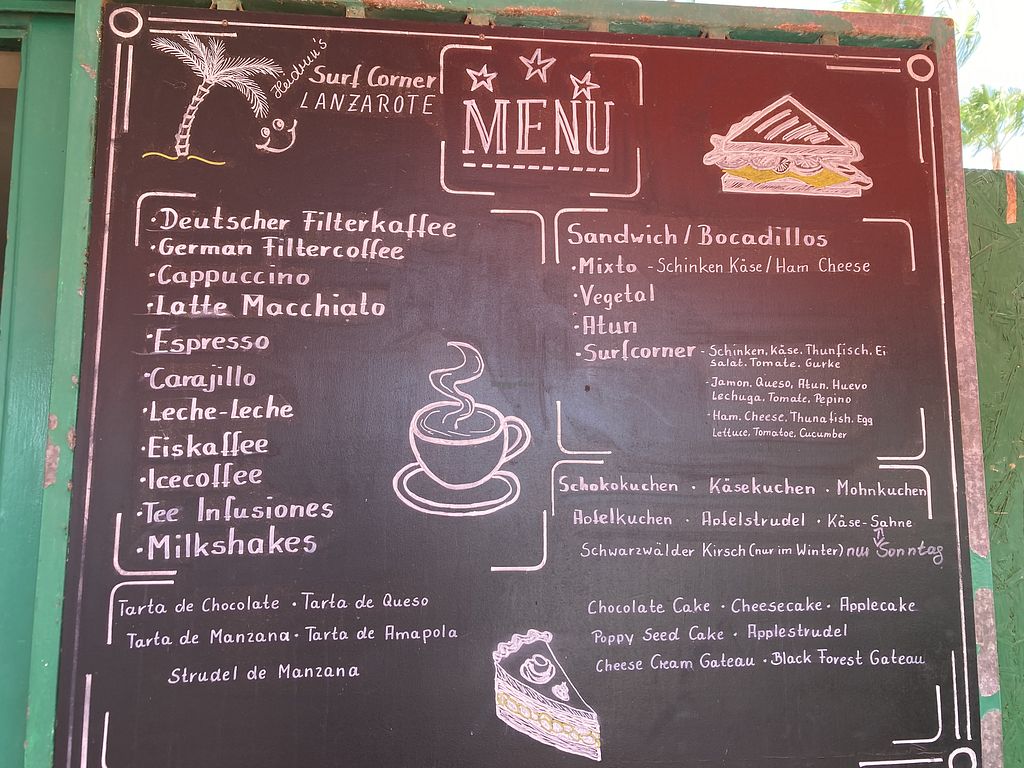 Heidrun's
Surf Corner
LANZAROTE
MENU
·Deutscher Filterkaffee
·German Filtercoffee
·Cappuccino
·Latte Macchiato
·Espresso
·Carajillo
·Leche-Leche
·Eiskaffee
·Icecoffee
·Tee Infusiones
·Milkshakes
Sandwich/Bocadillos
·Mixto - Schinken Käse/Ham Cheese
·Vegetal
·Atun
·Surfcorner - Schinken, Käse, Thunfisch, Ei
Salat, Tomate, Gurke
- Jamon, Queso, Atun, Huevo
Lechuga, Tomate, Pepino
- Ham, Cheese, Thunafish, Egg
Lettuce, Tomatoe, Cucumber
Schokokuchen · Käsekuchen · Mohnkuchen
Apfelkuchen · Apfelstrudel · Käse-Sahne
Schwarzwälder Kirsch (nur im Winter) nur Sonntag
Tarta de Chocolate · Tarta de Queso
Tarta de Manzana · Tarta de Amapola
Strudel de Manzana
Chocolate Cake · Cheesecake · Applecake
Poppy Seed Cake · Applestrudel
Cheese Cream Gateau · Black Forest Gateau